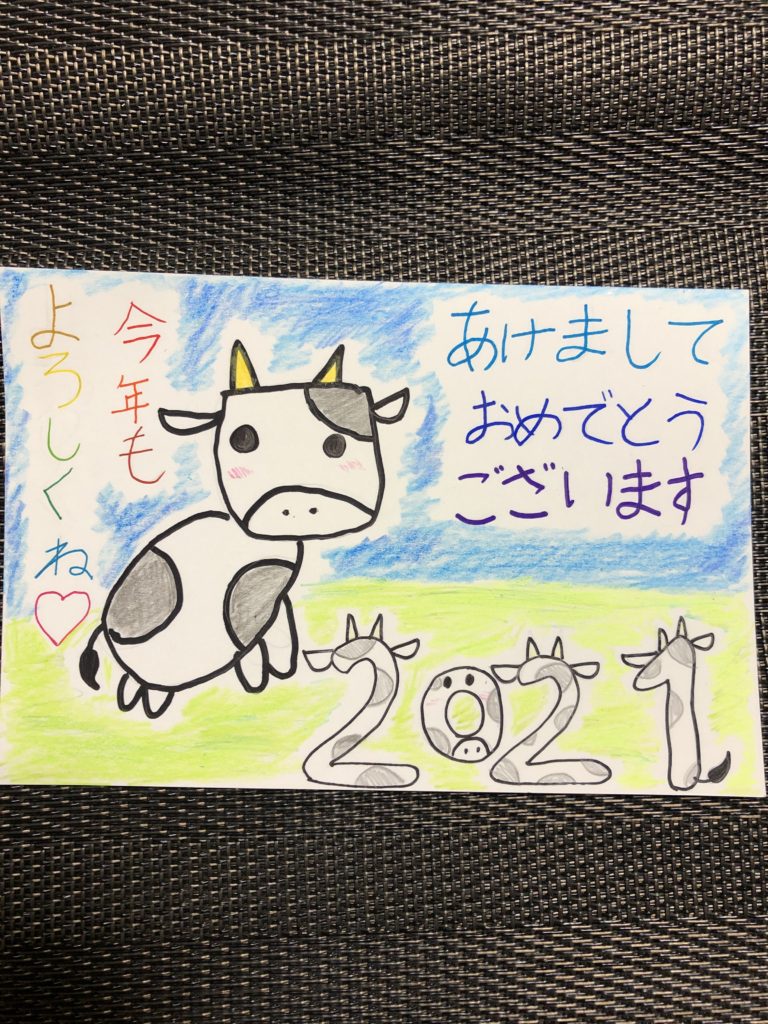 あけまして
おめでとう
ございます
今年も
よろしくね♡
2021